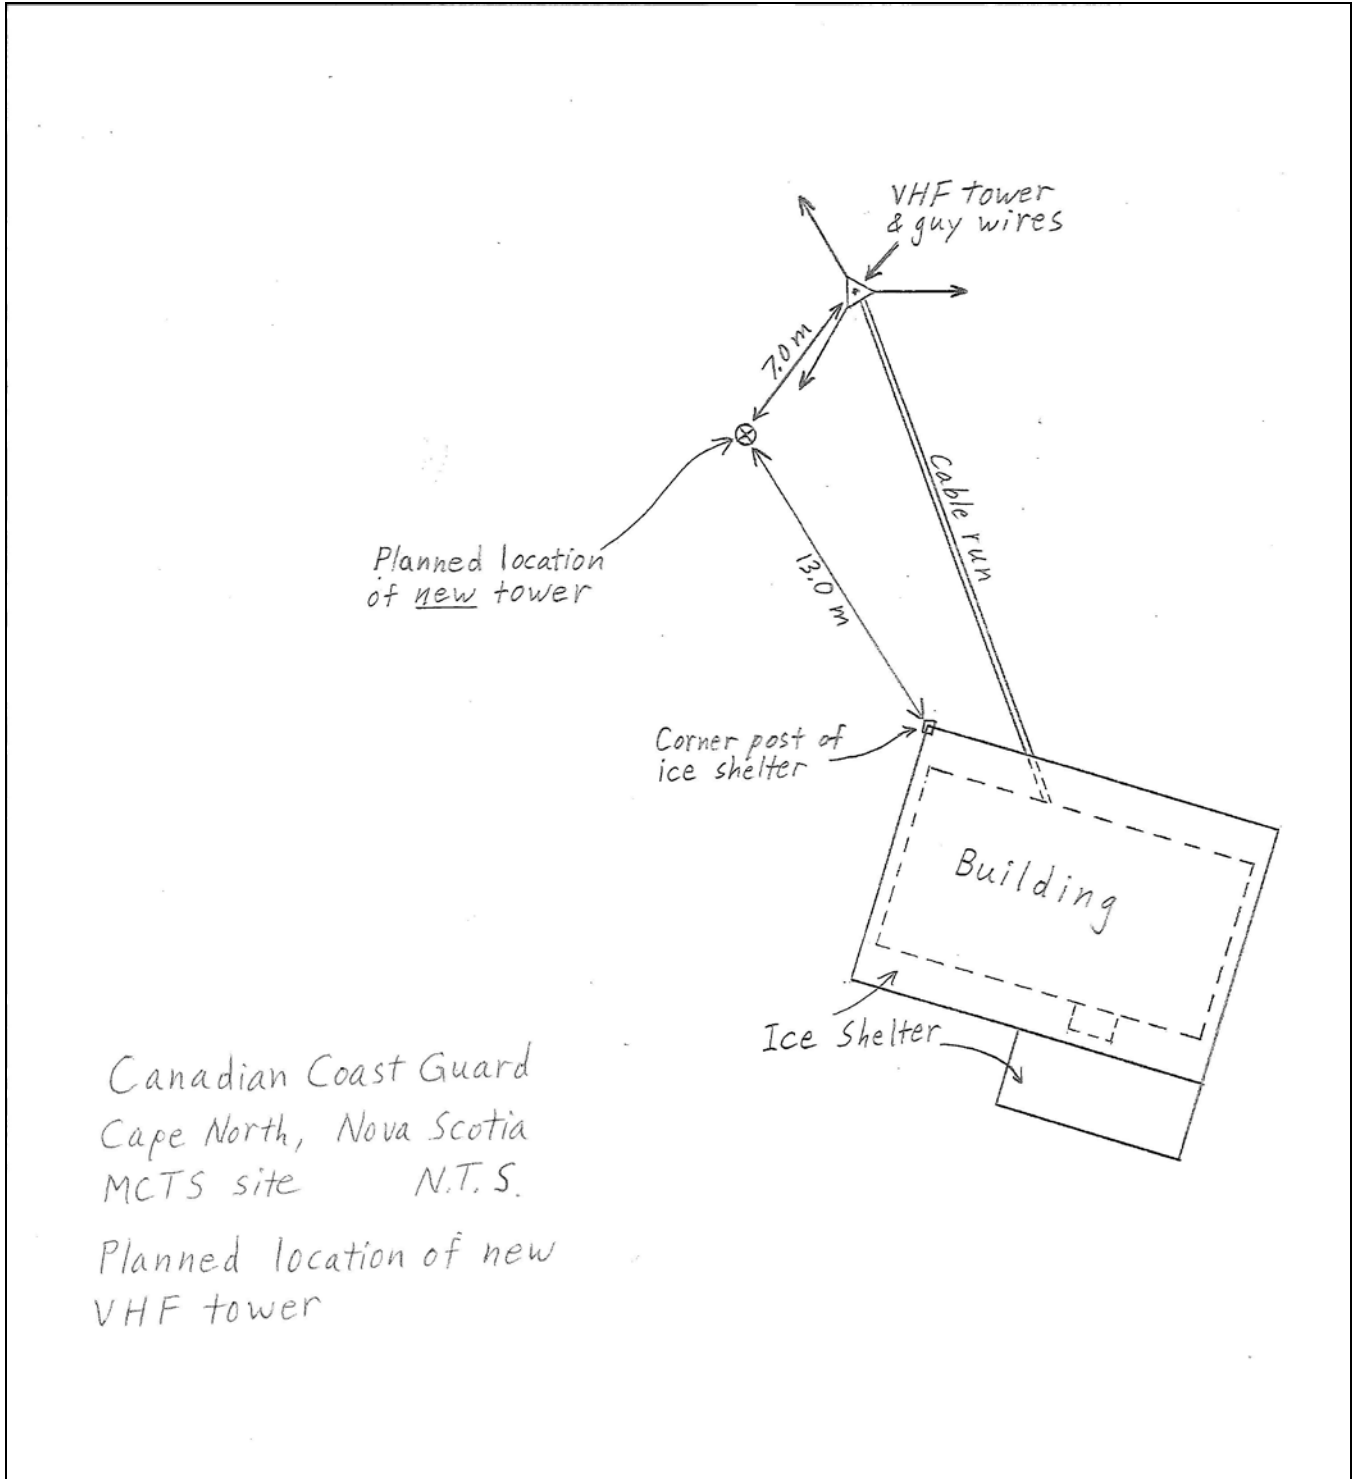 VHF tower
& guy wires
7.0 m
Cable run
Planned location
of new tower
13.0 m
Corner post of
ice shelter
Building
Ice Shelter
Canadian Coast Guard
Cape North, Nova Scotia
MCTS site N.T.S.
Planned location of new
VHF tower